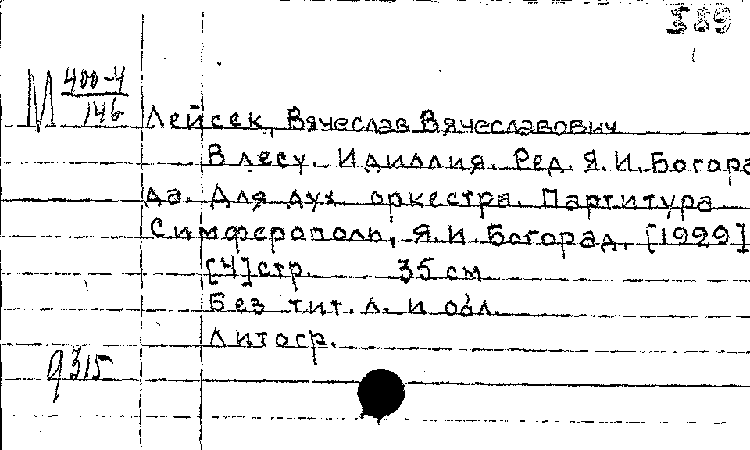 589
М 400-4/146
Лейсек, Вячеслав Вячеславович
В лесу. Идиллия. Ред. Я. И. Богора
да. Для дух оркестра. Партитура
Симферополь, Я. И. Богорад, [1929]
[4] стр. 35 см
Без тит. л. и обл.
Литогр.
9315